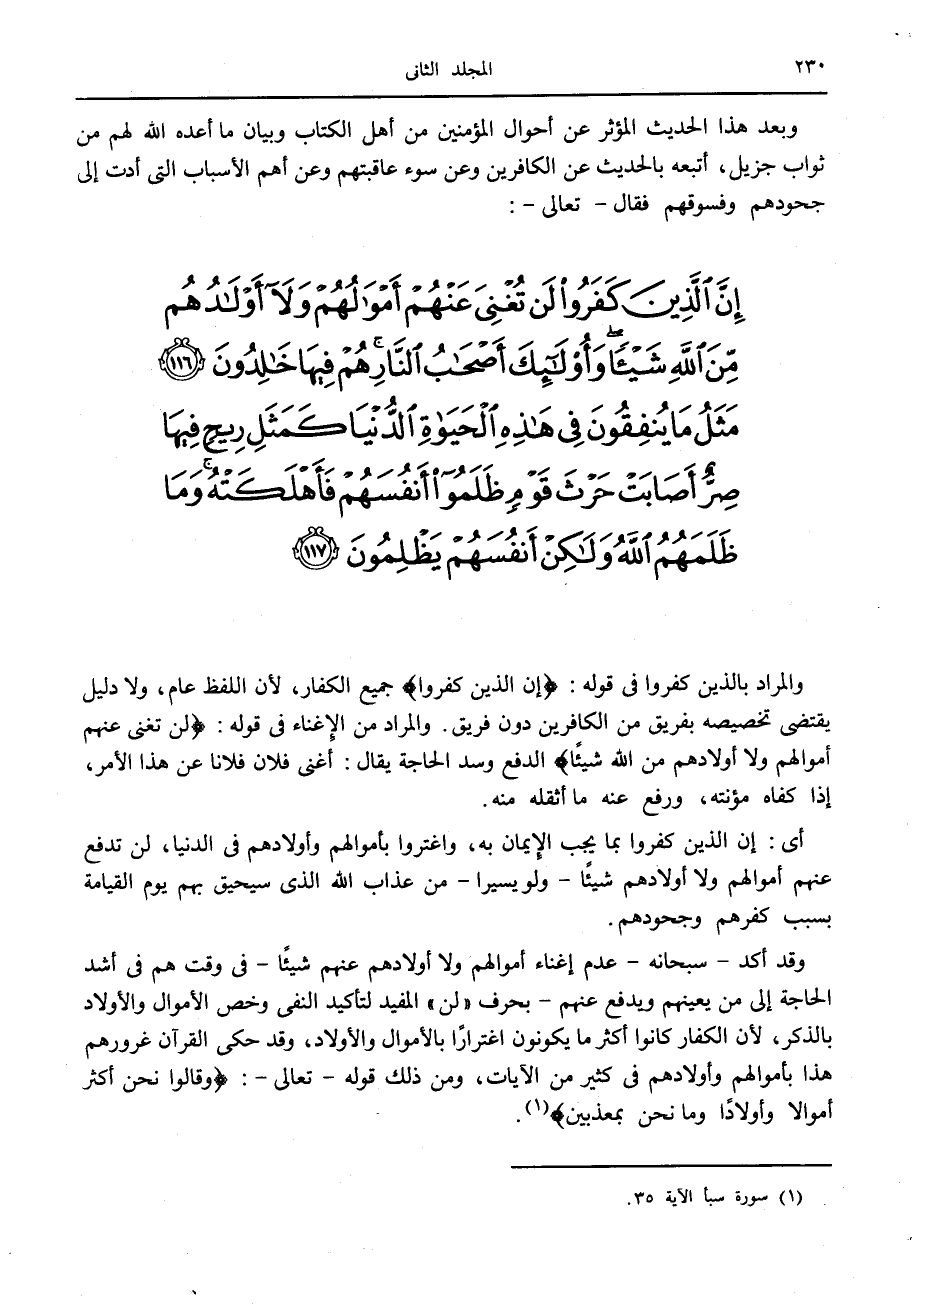 ٢٣٠
المجلد الثانى
وبعد هذا الحديث المؤثر عن أحوال المؤمنين من أهل الكتاب وبيان ما أعده الله لهم من
ثواب جزيل، أتبعه بالحديث عن الكافرين وعن سوء عاقبتهم وعن أهم الأسباب التى أدت إلى
جحودهم وفسوقهم فقال - تعالى - :
إِنَّ ٱلَّذِينَ كَفَرُوا۟ لَن تُغْنِىَ عَنْهُمْ أَمْوَٰلُهُمْ وَلَآ أَوْلَٰدُهُم
مِّنَ ٱللَّهِ شَيْـًٔا ۖ وَأُو۟لَٰٓئِكَ أَصْحَٰبُ ٱلنَّارِ ۚ هُمْ فِيهَا خَٰلِدُونَ ١١٦
مَثَلُ مَا يُنفِقُونَ فِى هَٰذِهِ ٱلْحَيَوٰةِ ٱلدُّنْيَا كَمَثَلِ رِيحٍ فِيهَا
صِرٌّ أَصَابَتْ حَرْثَ قَوْمٍ ظَلَمُوٓا۟ أَنفُسَهُمْ فَأَهْلَكَتْهُ ۚ وَمَا
ظَلَمَهُمُ ٱللَّهُ وَلَٰكِنْ أَنفُسَهُمْ يَظْلِمُونَ ١١٧
والمراد بالذين كفروا فى قوله : ﴿إن الذين كفروا﴾ جميع الكفار، لأن اللفظ عام، ولا دليل
يقتضى تخصيصه بفريق من الكافرين دون فريق. والمراد من الإغناء فى قوله : ﴿لن تغنى عنهم
أموالهم ولا أولادهم من الله شيئًا﴾ الدفع وسد الحاجة يقال : أغنى فلان فلانا عن هذا الأمر،
إذا كفاه مؤنته، ورفع عنه ما أثقله منه.
أى : إن الذين كفروا بما يجب الإيمان به، واغتروا بأموالهم وأولادهم فى الدنيا، لن تدفع
عنهم أموالهم ولا أولادهم شيئًا - ولو يسيرا - من عذاب الله الذى سيحيق بهم يوم القيامة
بسبب كفرهم وجحودهم.
وقد أكد - سبحانه - عدم إغناء أموالهم ولا أولادهم عنهم شيئًا - فى وقت هم فى أشد
الحاجة إلى من يعينهم ويدفع عنهم - بحرف «لن» المفيد لتأكيد النفى وخص الأموال والأولاد
بالذكر، لأن الكفار كانوا أكثر ما يكونون اغترارًا بالأموال والأولاد، وقد حكى القرآن غرورهم
هذا بأموالهم وأولادهم فى كثير من الآيات، ومن ذلك قوله - تعالى -: ﴿وقالوا نحن أكثر
أموالا وأولادًا وما نحن بمعذبين﴾(١).
(١) سورة سبأ الآية ٣٥.